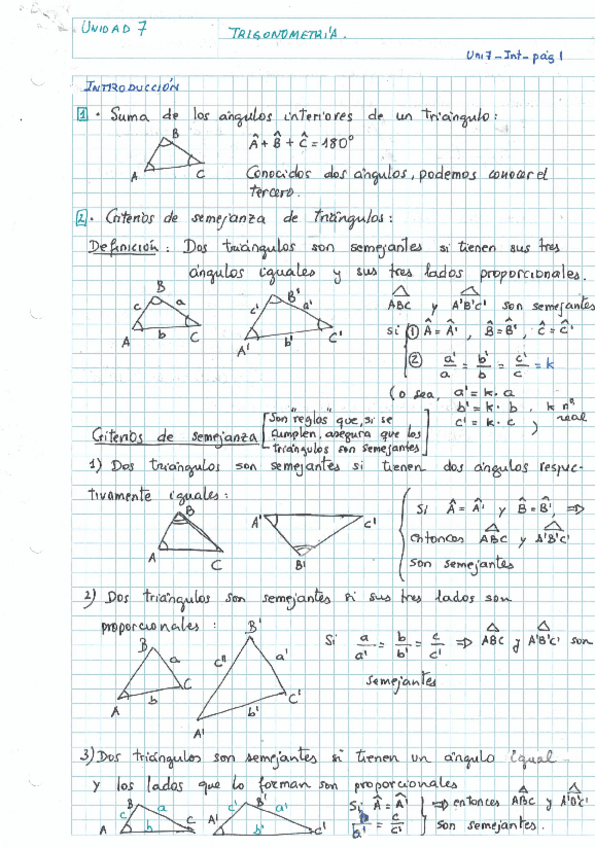 UNIDAD 7
TRIGONOMETRÍA.
Uni7_Int_pág 1
INTRODUCCIÓN
1 • Suma de los ángulos interiores de un triángulo:
B
A C
Â + B̂ + Ĉ = 180°
Conocidos dos ángulos, podemos conocer el
tercero.
2 • Criterios de semejanza de triángulos:
Definición: Dos triángulos son semejantes si tienen sus tres
ángulos iguales y sus tres lados proporcionales.
B c a A b C
B' c' a' A' b' C'
ABC y A'B'C' son semejantes
si ① Â = Â', B̂ = B̂', Ĉ = Ĉ'
② a'/a = b'/b = c'/c = k
(o sea, a' = k · a
b' = k · b, k nº real
c' = k · c )
Criterios de semejanza
[Son "reglas" que, si se
cumplen, asegura que los
triángulos son semejantes]
1) Dos triángulos son semejantes si tienen dos ángulos respec-
tivamente iguales:
B A C
A' C' B'
Si Â = Â' y B̂ = B̂', ⇒
entonces ABC y A'B'C'
son semejantes
2) Dos triángulos son semejantes si sus tres lados son
proporcionales:
B a A b C
B' c' a' A' b' C'
Si a/a' = b/b' = c/c' ⇒ ABC y A'B'C' son
semejantes
3) Dos triángulos son semejantes si tienen un ángulo igual
y los lados que lo forman son proporcionales
B c a A b C
B' c' a' A' b' C'
Si Â = Â'
= c/c'
⇒ entonces ABC y A'B'C'
son semejantes.